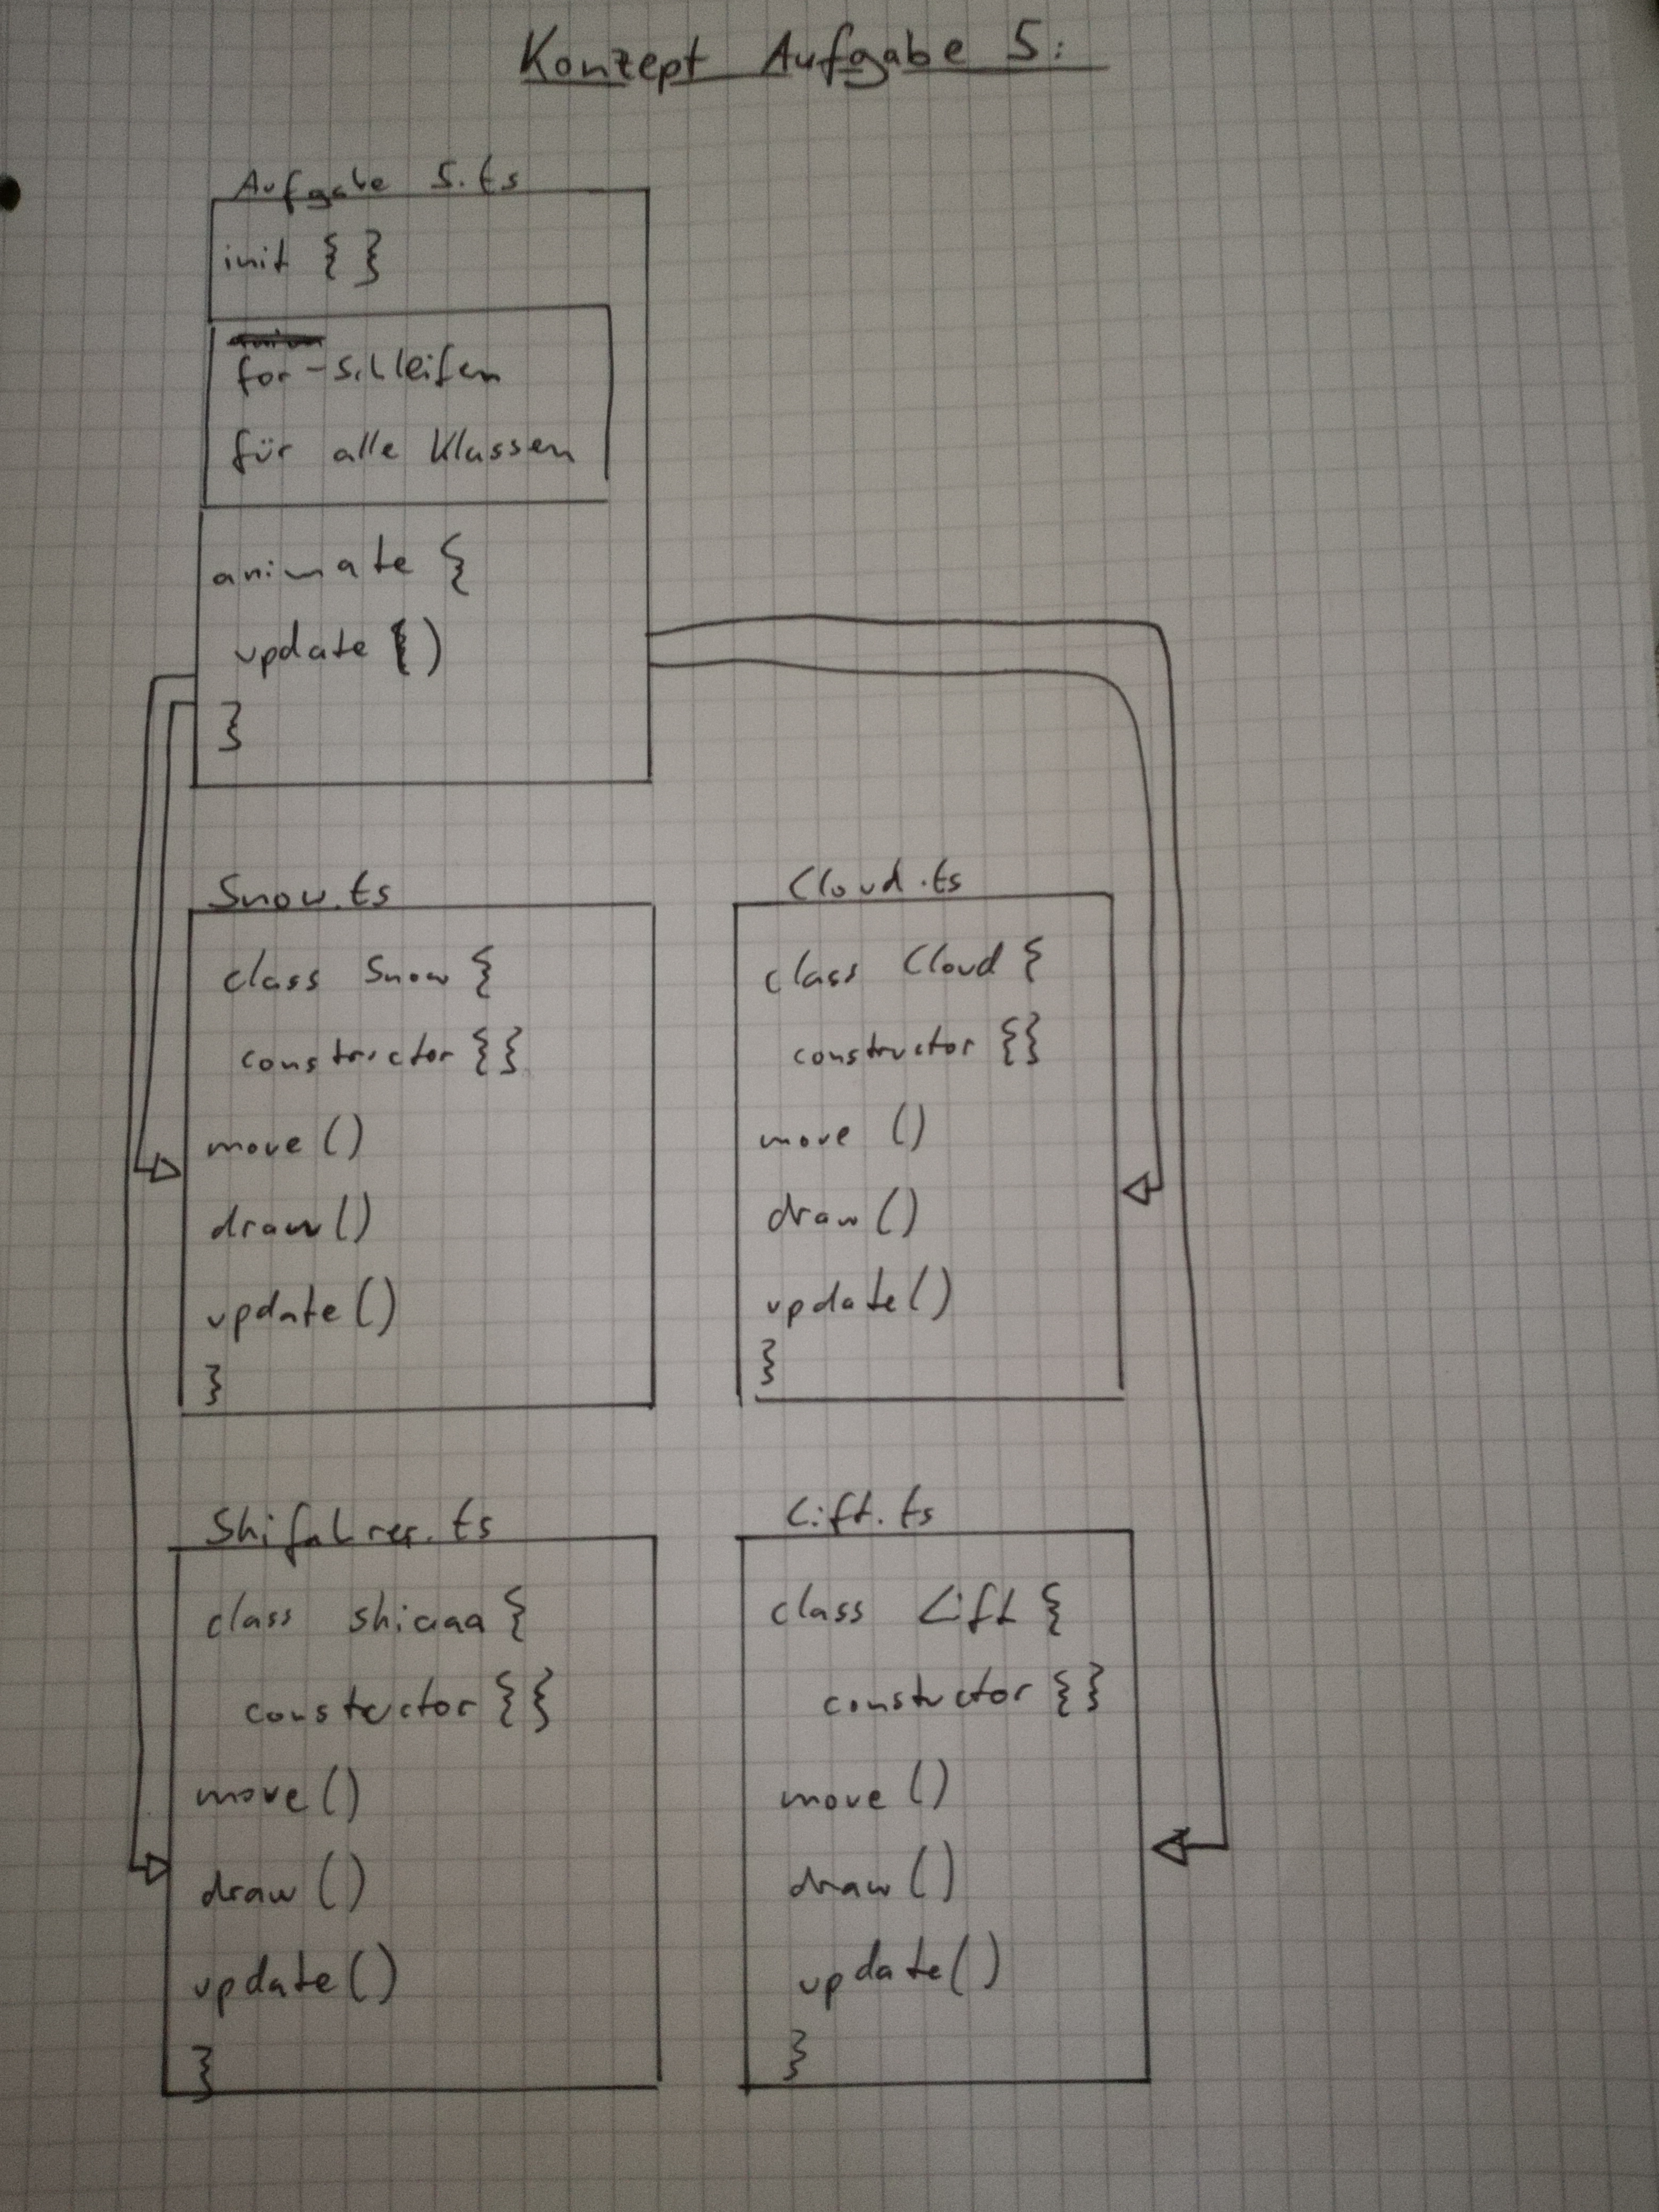 Konzept Aufgabe 5:
Aufgabe 5.ts
init { }
for-schleifen
für alle Klassen
animate {
update ()
}
Snow.ts
class Snow {
constructor {}
move ()
draw ()
update ()
}
Cloud.ts
class Cloud {
constructor {}
move ()
draw ()
update ()
}
Shifahrer.ts
class {
constuctor {}
move ()
draw ()
update ()
}
Lift.ts
class Lift {
constuctor {}
move ()
draw ()
update ()
}